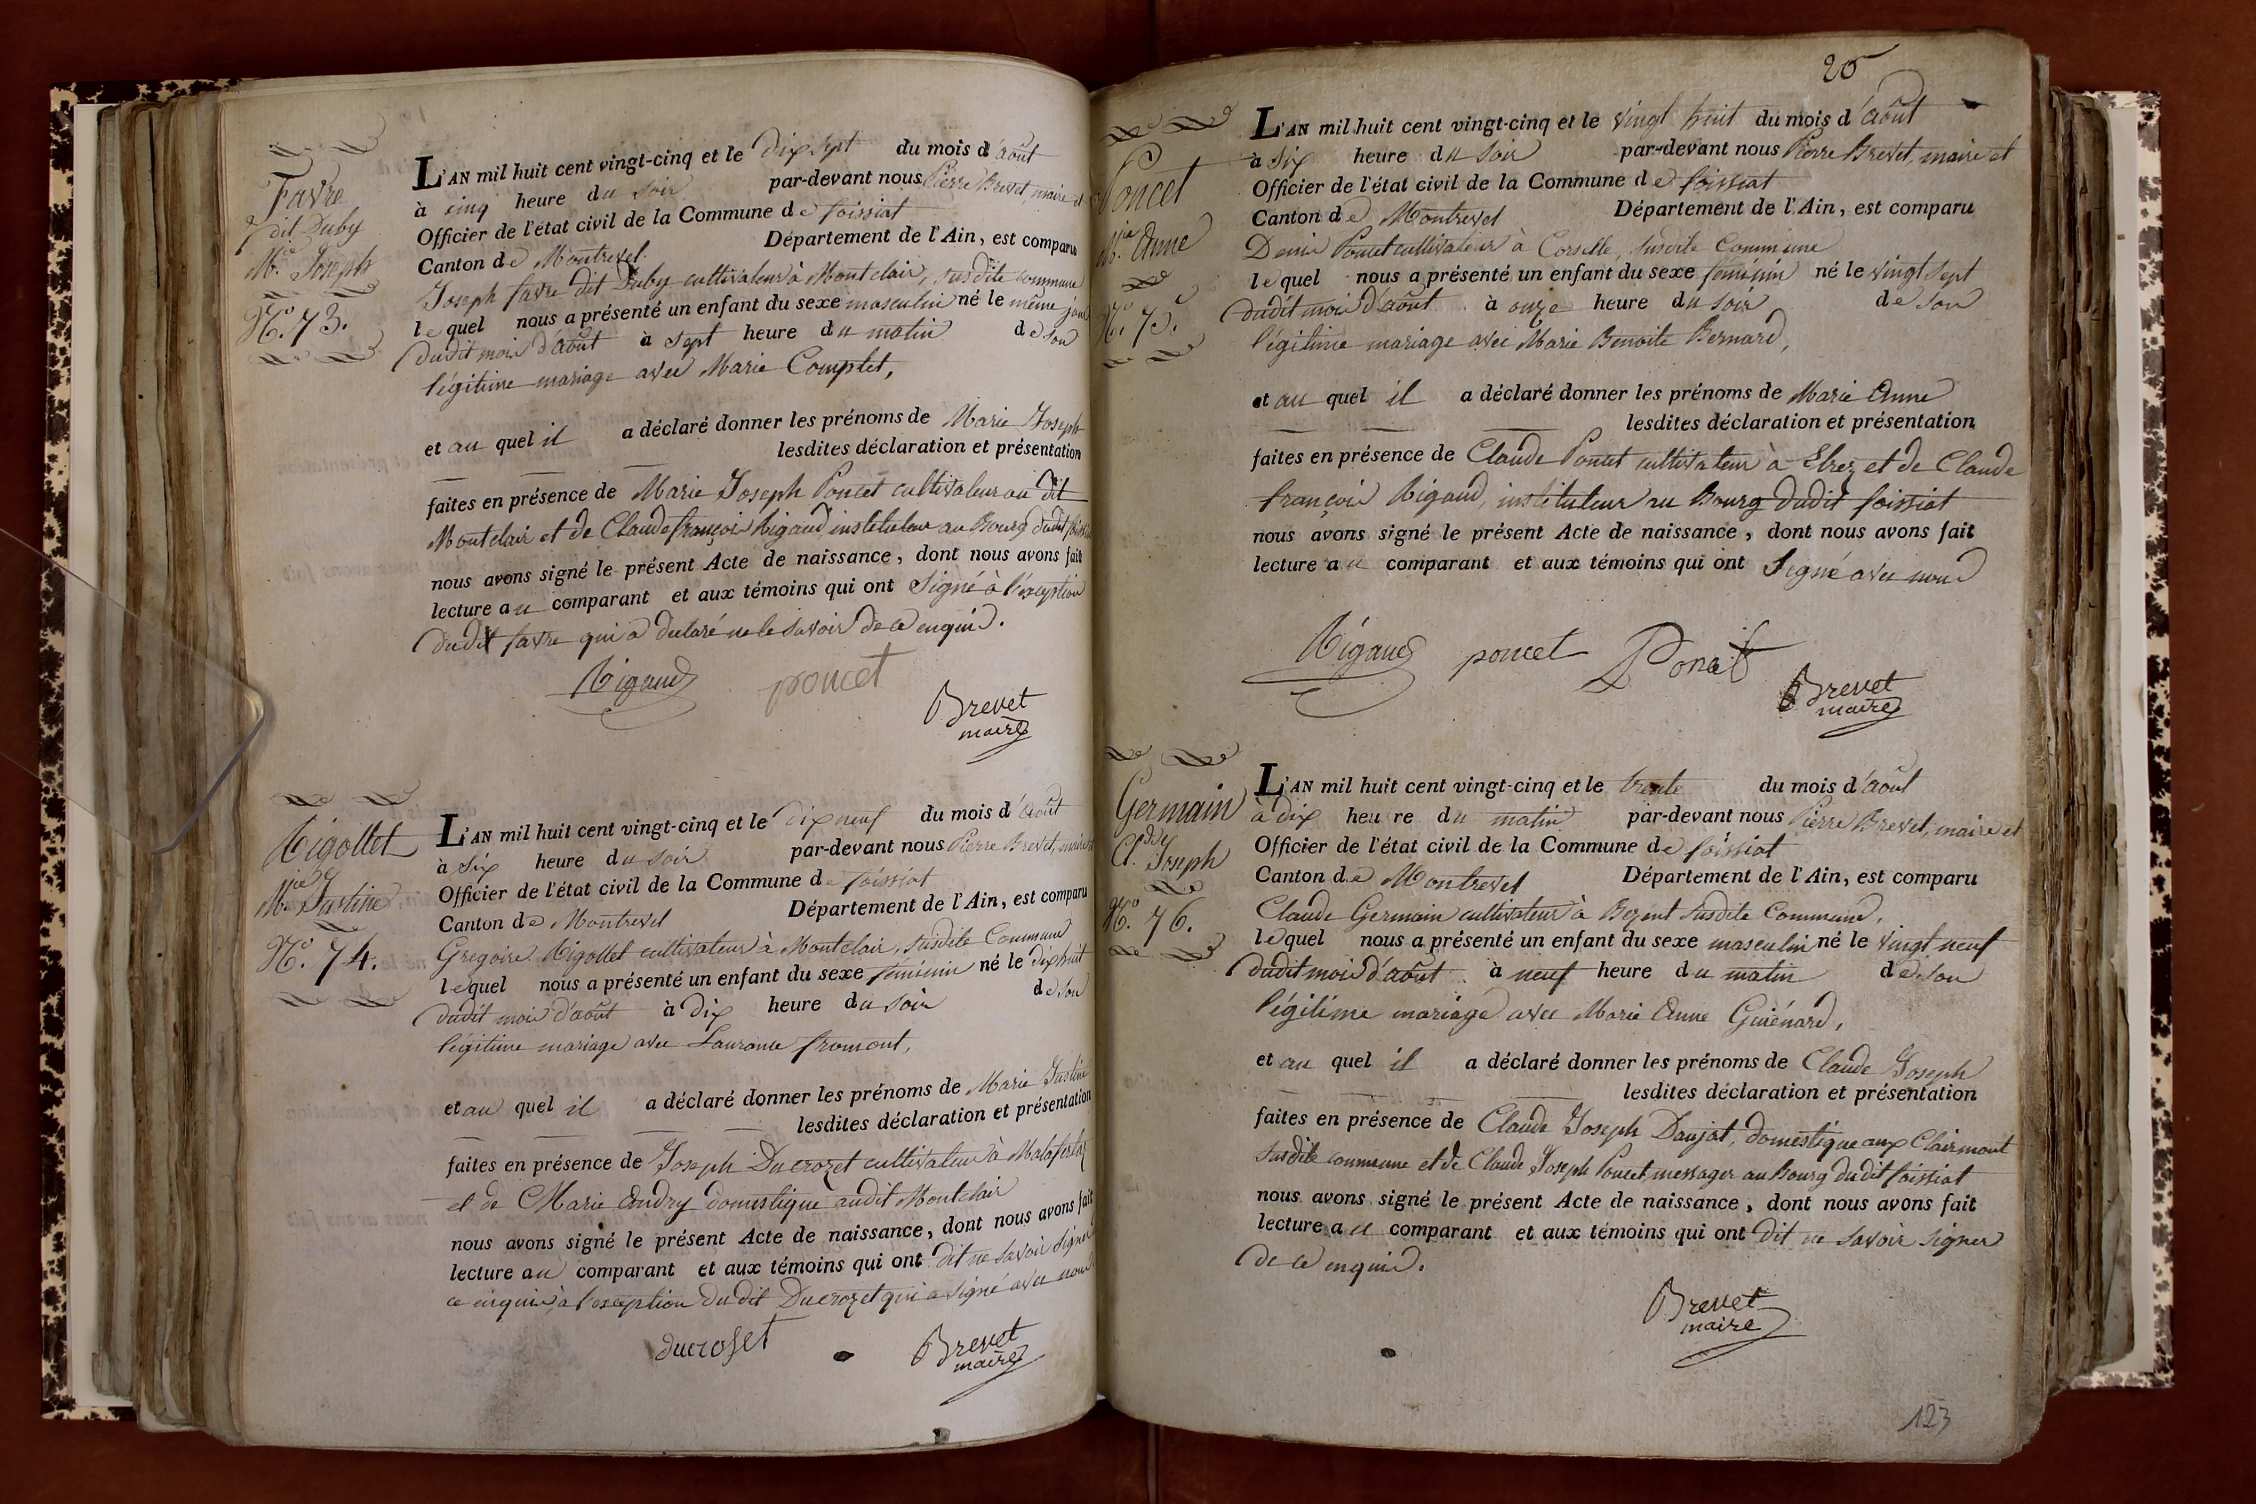 Favre
dit Duby
M.ie Joseph
N.o 73.
L'AN mil huit cent vingt-cinq et le dix sept du mois d'août
à cinq heure du soir par-devant nous Pierre Brevet, maire et
Officier de l'état civil de la Commune de foissiat
Canton de Montrevel Département de l'Ain, est comparu
Joseph favre dit Duby cultivateur à Montclair, susdite commune
lequel nous a présenté un enfant du sexe masculin né le même jour
dudit mois d'août à sept heure du matin de son
légitime mariage avec Marie Complet,
et au quel il a déclaré donner les prénoms de Marie Joseph
lesdites déclaration et présentation
faites en présence de Marie Joseph Poncet cultivateur au dit
Montclair et de Claude françois Rigaud, instituteur au Bourg dudit foissiat
nous avons signé le présent Acte de naissance, dont nous avons fait
lecture au comparant et aux témoins qui ont signé à l'exception
dudit favre qui a declaré ne le savoir de ce enquis.
Rigaud poncet
Brevet
maire
Rigollet
M.ie Justine
N.o 74.
L'AN mil huit cent vingt-cinq et le dix neuf du mois d'août
à six heure du soir par-devant nous Pierre Brevet, maire et
Officier de l'état civil de la Commune de foissiat
Canton de Montrevel Département de l'Ain, est comparu
Gregoire Rigollet cultivateur à Montclair, susdite Commune
lequel nous a présenté un enfant du sexe féminin né le dix huit
dudit mois d'août à dix heure du soir de son
légitime mariage avec Laurence fromont,
et au quel il a déclaré donner les prénoms de Marie Justine
lesdites déclaration et présentation
faites en présence de Joseph Ducrozet cultivateur à
et de Marie Andry domestique audit Montclair
nous avons signé le présent Acte de naissance, dont nous avons fait
lecture au comparant et aux témoins qui ont dit ne savoir signer
ce enquis, à l'exception dudit Ducrozet qui a signé avec nous
ducroset
Brevet
maire
20
Poncet
M.ie Anne
N.o 75.
L'AN mil huit cent vingt-cinq et le vingt huit du mois d'août
à six heure du soir par-devant nous Pierre Brevet, maire et
Officier de l'état civil de la Commune de foissiat
Canton de Montrevel Département de l'Ain, est comparu
Denis Poncet cultivateur à Corselle, susdite Commune
lequel nous a présenté un enfant du sexe féminin né le vingt sept
dudit mois d'août à onze heure du soir de son
légitime mariage avec Marie Benoite Bernard,
et au quel il a déclaré donner les prénoms de Marie Anne
lesdites déclaration et présentation
faites en présence de Claude Poncet cultivateur à Elrez et de Claude
françois Rigaud, instituteur au Bourg dudit foissiat
nous avons signé le présent Acte de naissance, dont nous avons fait
lecture au comparant et aux témoins qui ont signé avec nous
Rigaud poncet Poncet
Brevet
maire
Germain
Cl.de Joseph
N.o 76.
L'AN mil huit cent vingt-cinq et le trente du mois d'août
à dix heure du matin par-devant nous Pierre Brevet, maire et
Officier de l'état civil de la Commune de foissiat
Canton de Montrevel Département de l'Ain, est comparu
Claude Germain cultivateur à Bezent susdite Commune,
lequel nous a présenté un enfant du sexe masculin né le vingt neuf
dudit mois d'août à neuf heure du matin de son
légitime mariage avec Marie Anne Guénard,
et au quel il a déclaré donner les prénoms de Claude Joseph
lesdites déclaration et présentation
faites en présence de Claude Joseph Daujat, domestique aux Clairmont
susdite commune et de Claude Joseph Poncet, messager au Bourg dudit foissiat
nous avons signé le présent Acte de naissance, dont nous avons fait
lecture au comparant et aux témoins qui ont dit ne savoir signer
de ce enquis.
Brevet
maire
123